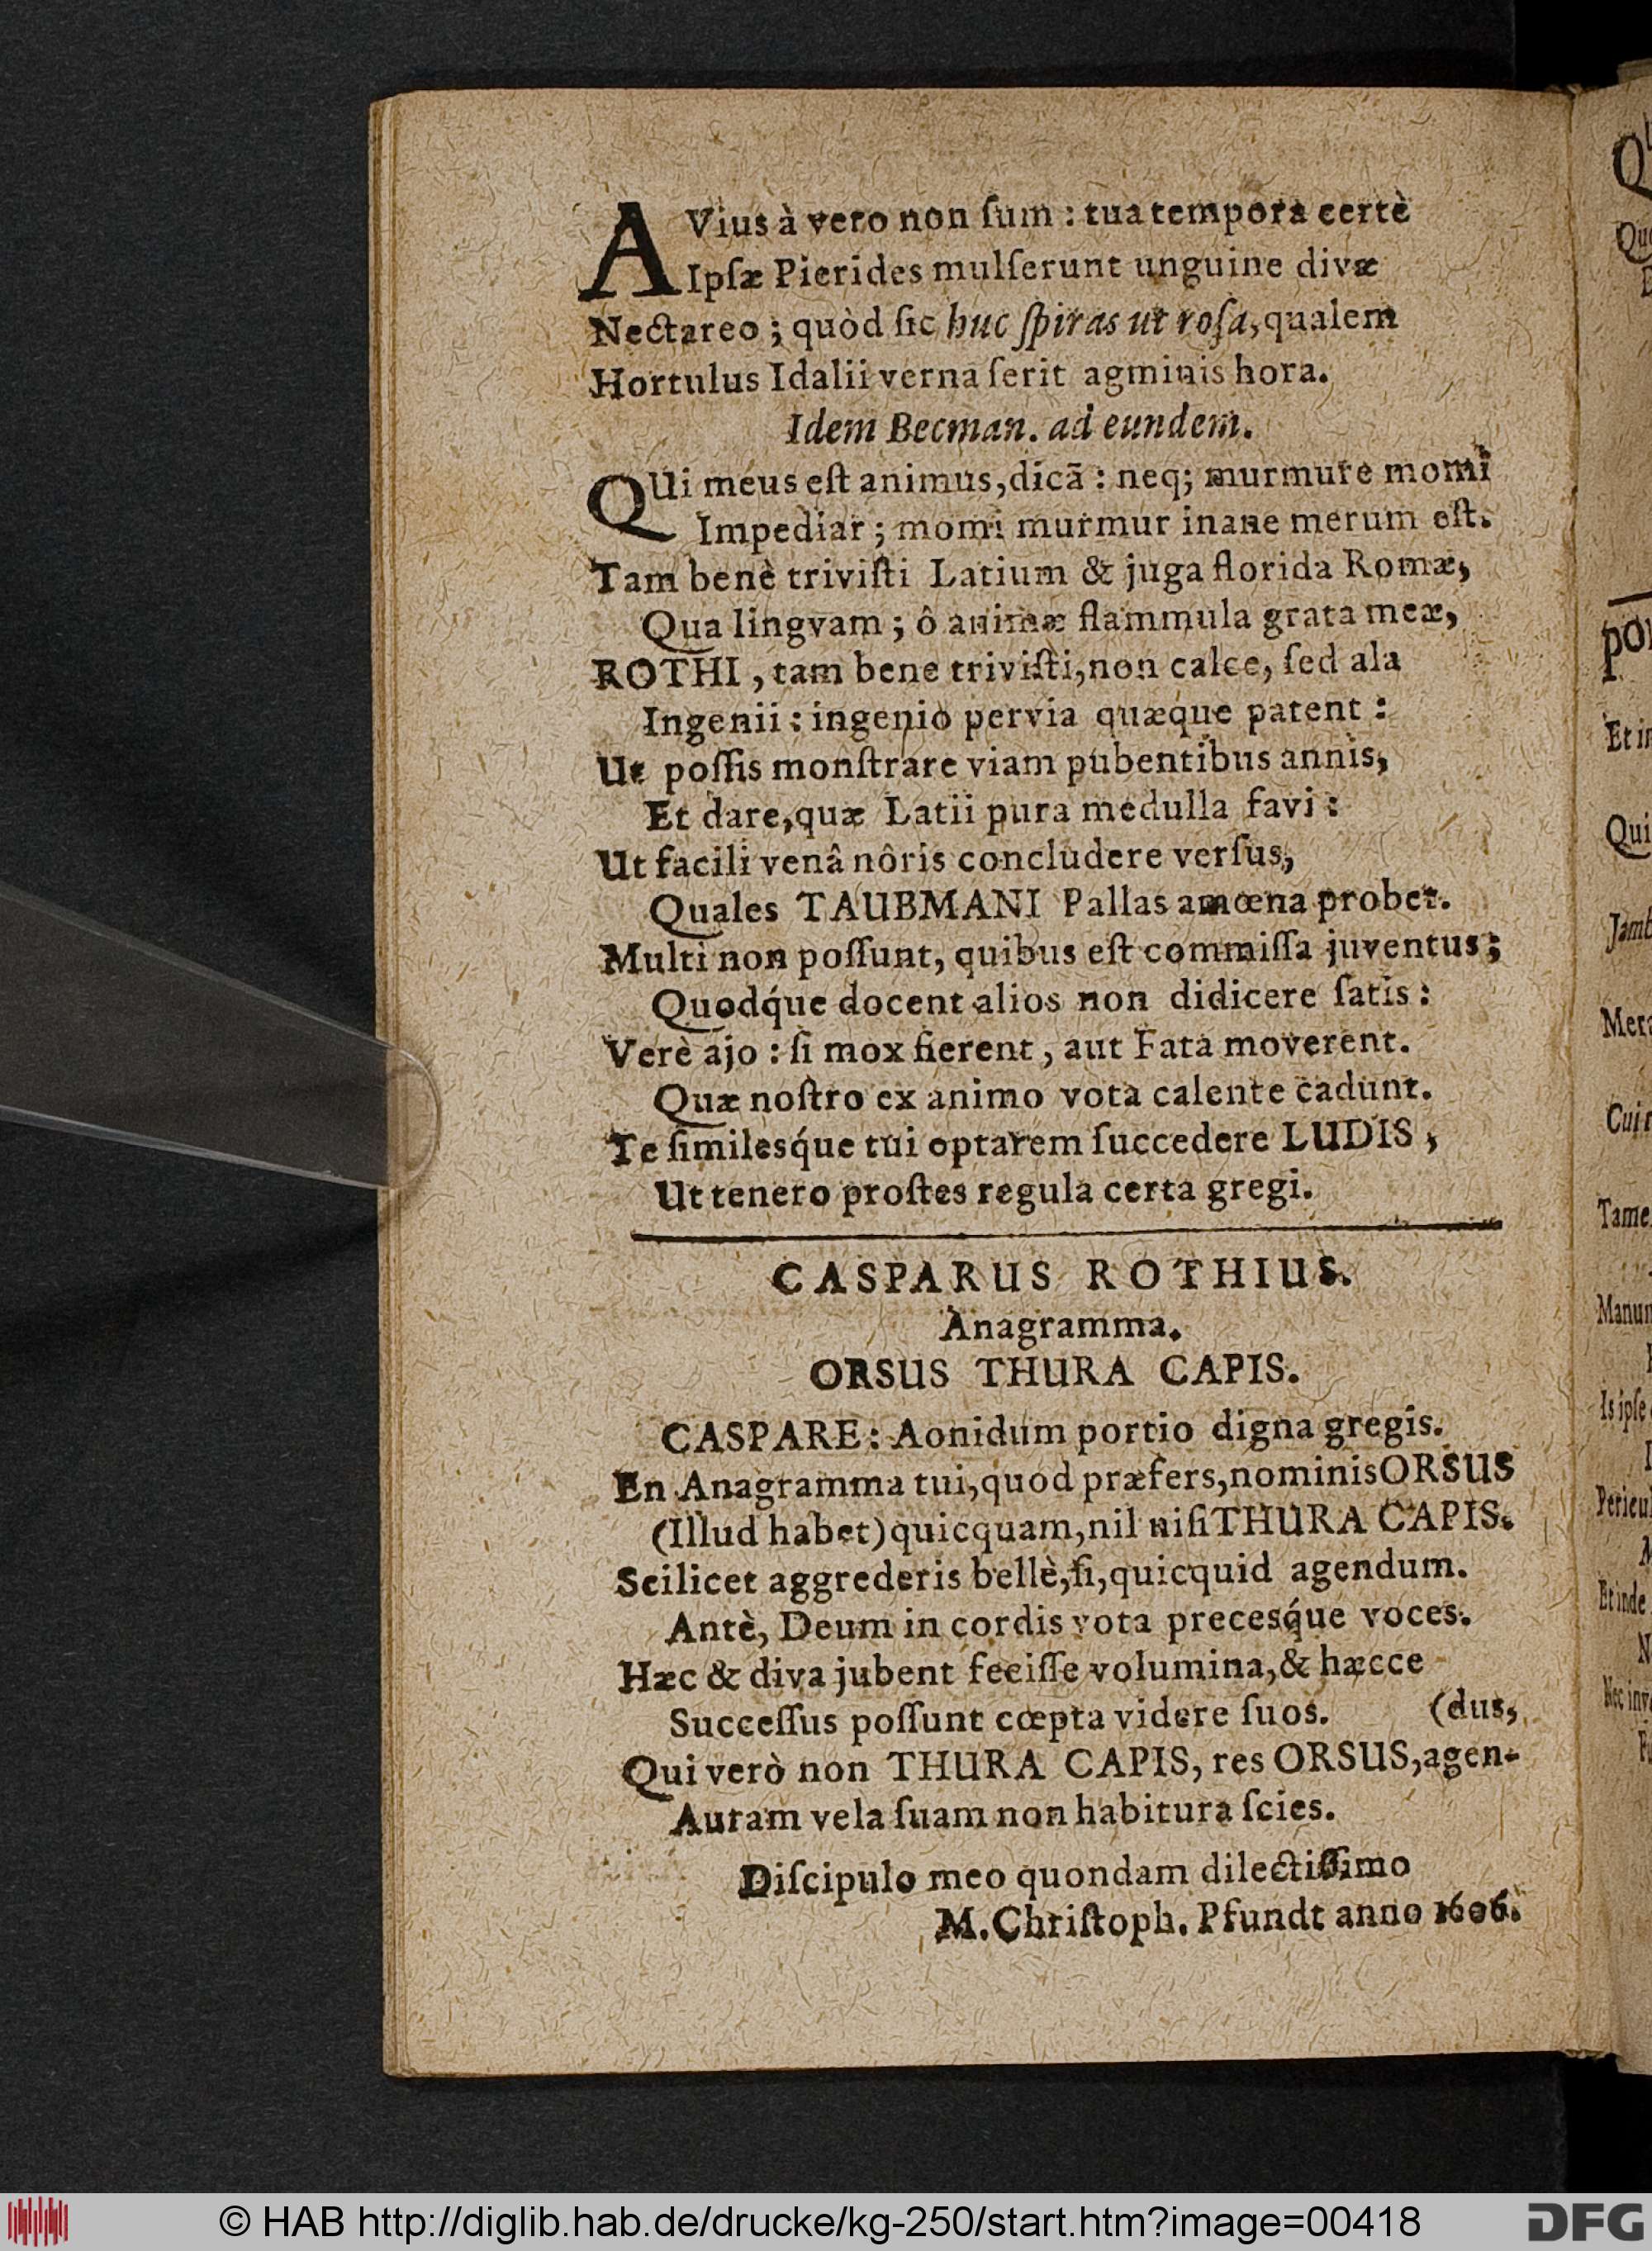 AVius à vero non ſum : tua tempora certè
Ipſæ Pierides mulſerunt unguine divæ
Nectareo ; quòd ſic huc ſpiras ut roſa, qualem
Hortulus Idalii verna ſerit agminis hora.
Idem Becman. ad eundem.
QUi meus eſt animus, dicã : neq; murmure momi
Impediar ; momi murmur inane merum eſt.
Tam benè triviſti Latium & juga florida Romæ,
Qua lingvam ; ô animæ flammula grata meæ,
ROTHI, tam bene triviſti, non calce, ſed ala
Ingenii : ingenio pervia quæque patent :
Ut poſſis monſtrare viam pubentibus annis,
Et dare, quæ Latii pura medulla favi :
Ut facili venâ nôris concludere verſus,
Quales TAUBMANI Pallas amœna probet.
Multi non poſſunt, quibus eſt commiſſa juventus ;
Quodq́ue docent alios non didicere ſatis :
Verè ajo : ſi mox fierent, aut Fata moverent.
Quæ noſtro ex animo vota calente cadunt.
Te ſimilesq́ue tui optarem ſuccedere LUDIS,
Ut tenero proſtes regula certa gregi.
CASPARUS ROTHIUS.
Anagramma.
ORSUS THURA CAPIS.
CASPARE : Aonidum portio digna gregis.
En Anagramma tui, quod præfers, nominis ORSUS
(Illud habet) quicquam, nil niſi THURA CAPIS.
Scilicet aggrederis bellè, ſi, quicquid agendum.
Antè, Deum in cordis vota precesq́ue voces.
Hæc & diva jubent feciſſe volumina, & hæcce
Succeſſus poſſunt cœpta videre ſuos. (dus,
Qui verò non THURA CAPIS, res ORSUS, agen-
Auram vela ſuam non habitura ſcies.
Diſcipulo meo quondam dilectiſſimo
M. Chriſtoph. Pfundt anno 1606.
Et in
Qui
Cui
Tame
Manum
Is ipſe
Et inde
© HAB http://diglib.hab.de/drucke/kg-250/start.htm?image=00418
DFG